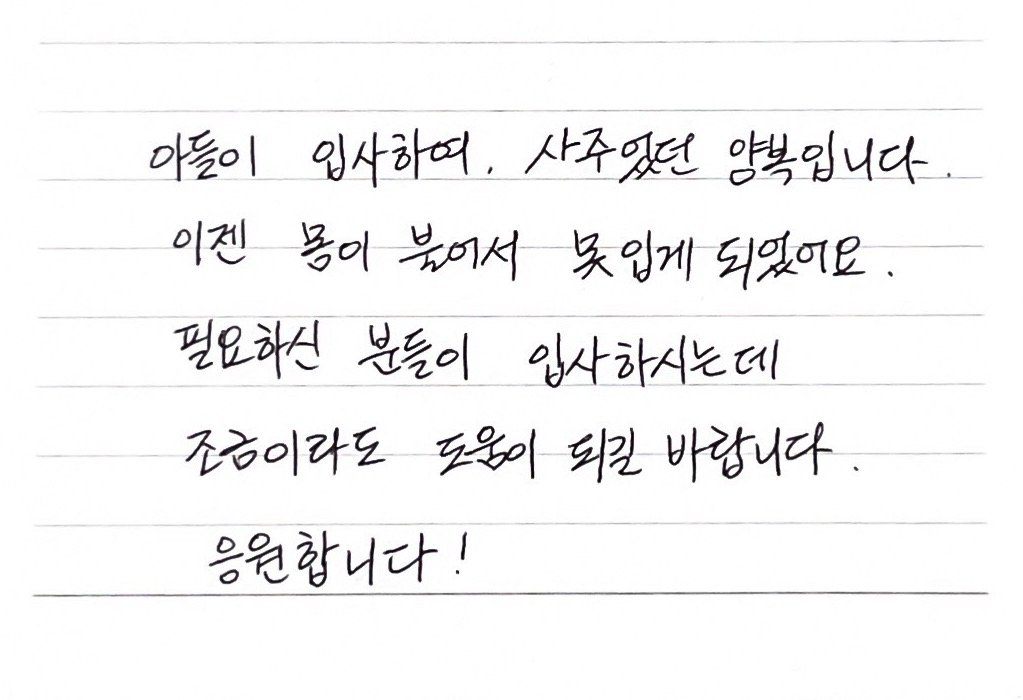 아들이 입사하여, 사주었던 양복입니다.
이젠 몸이 불어서 못입게 되었어요.
필요하신 분들이 입사하시는데
조금이라도 도움이 되길 바랍니다.
응원합니다!